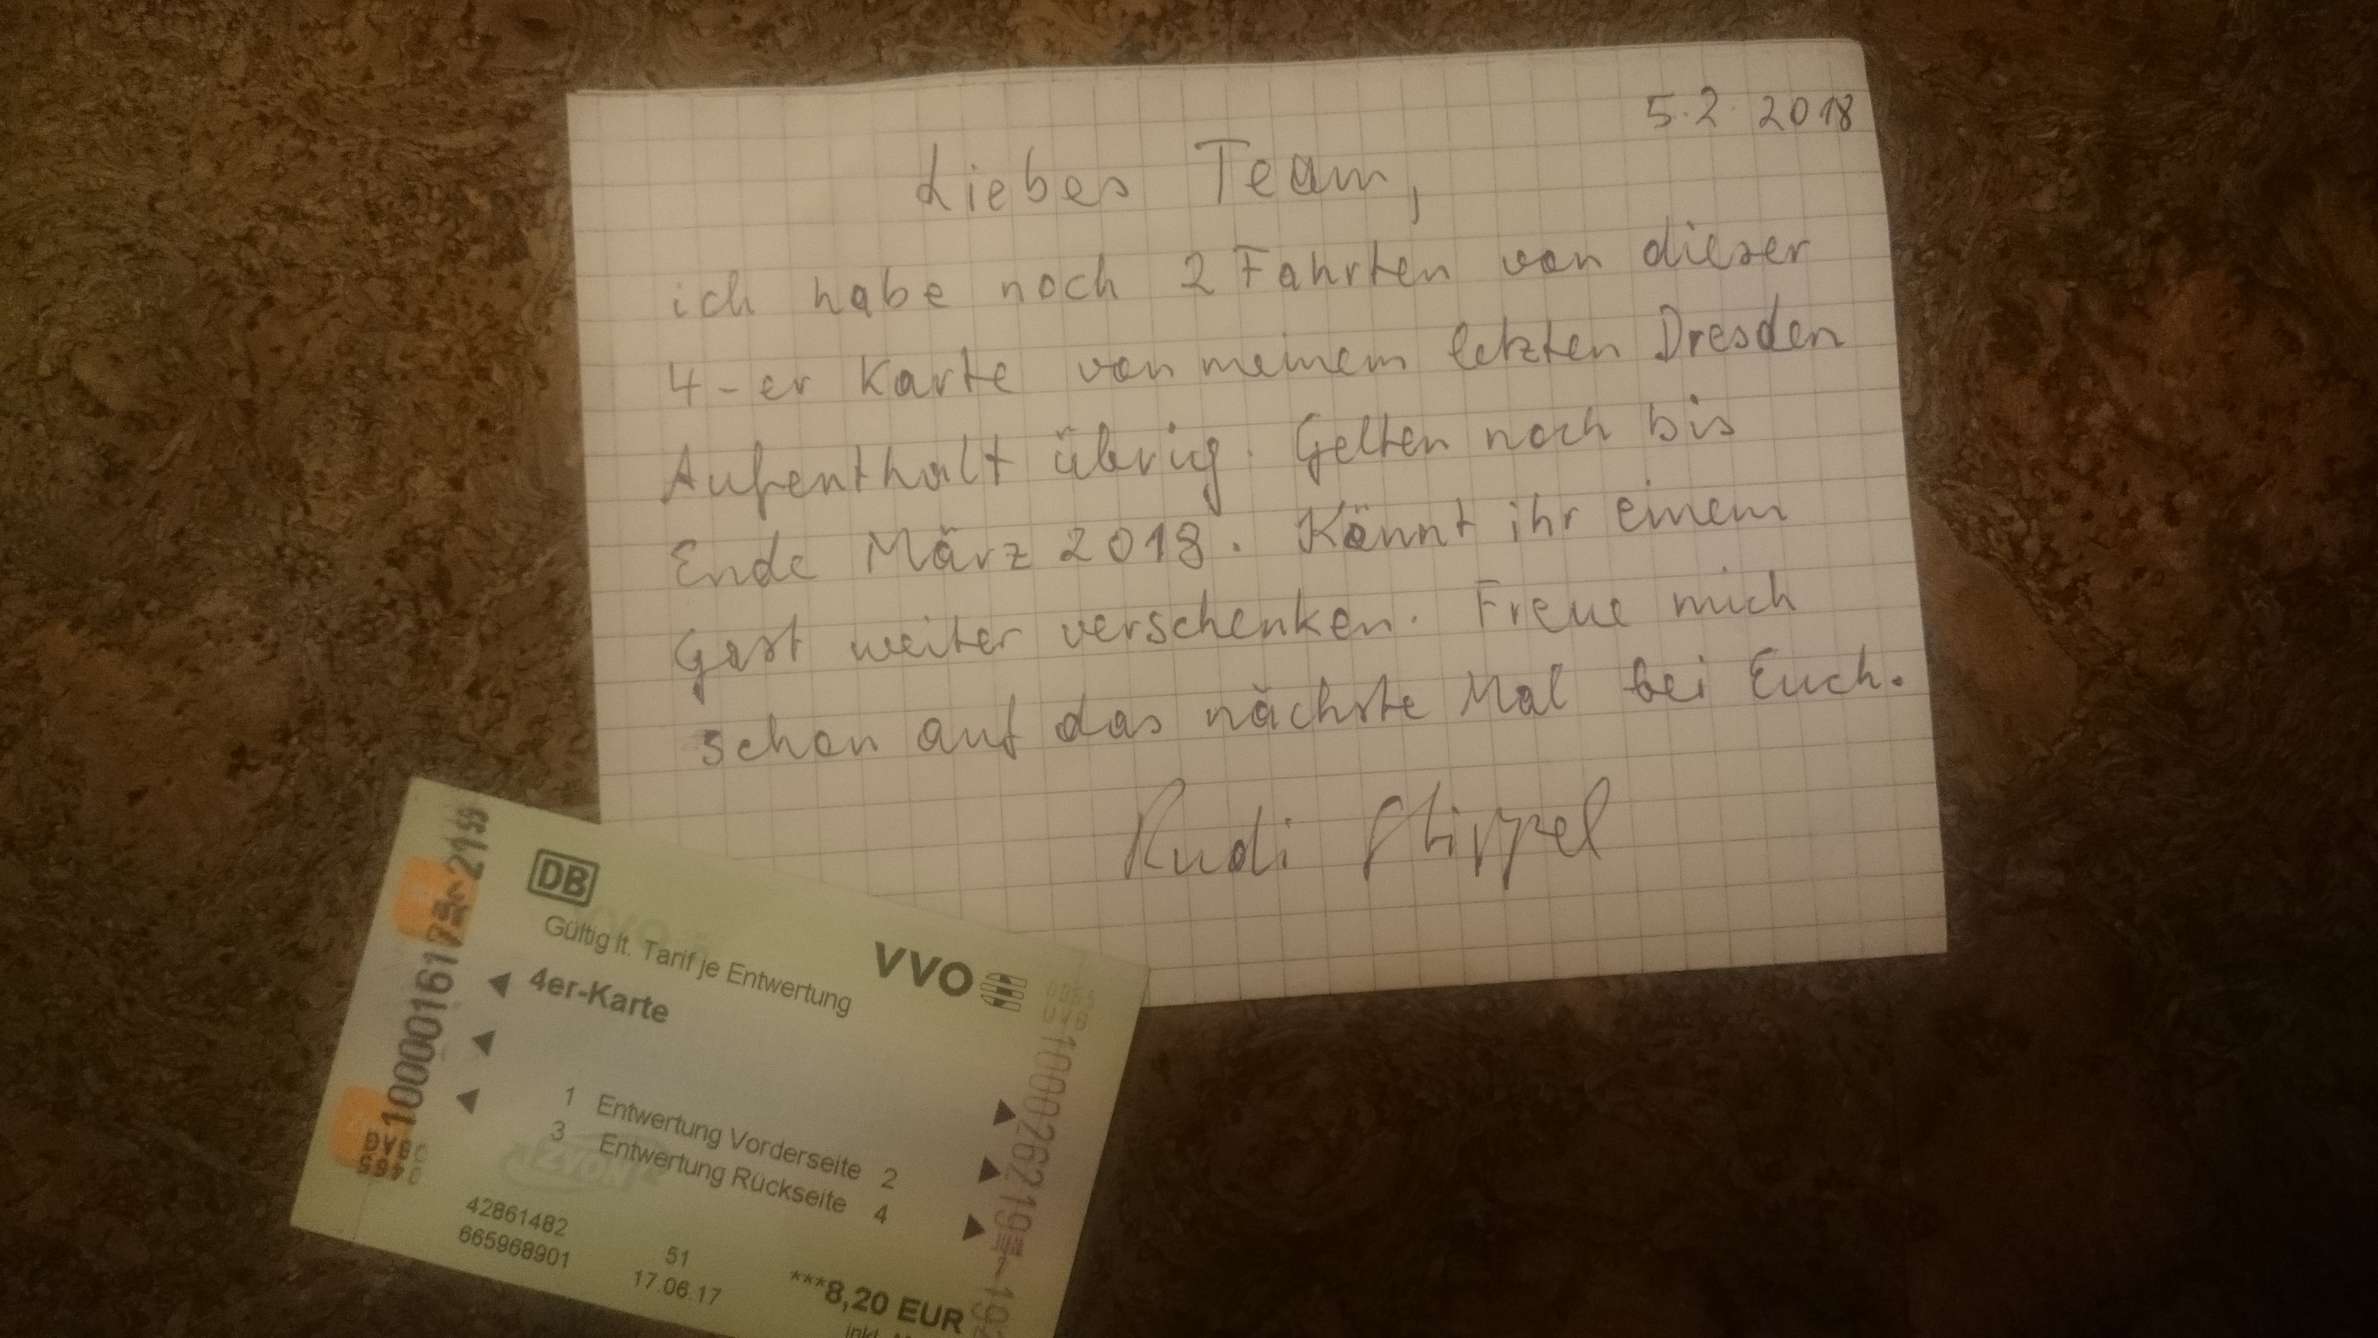 5.2.2018
Liebes Team,
ich habe noch 2 Fahrten von dieser
4-er Karte von meinem letzten Dresden
Aufenthalt übrig. Gelten noch bis
Ende März 2018. Könnt ihr einem
Gast weiter verschenken. Freue mich
schon auf das nächste Mal bei Euch.
Rudi
DB
VVO
Gültig lt. Tarif je Entwertung
4er-Karte
1 Entwertung Vorderseite 2
3 Entwertung Rückseite 4
42861482
665968901
51
17.06.17
***8,20 EUR